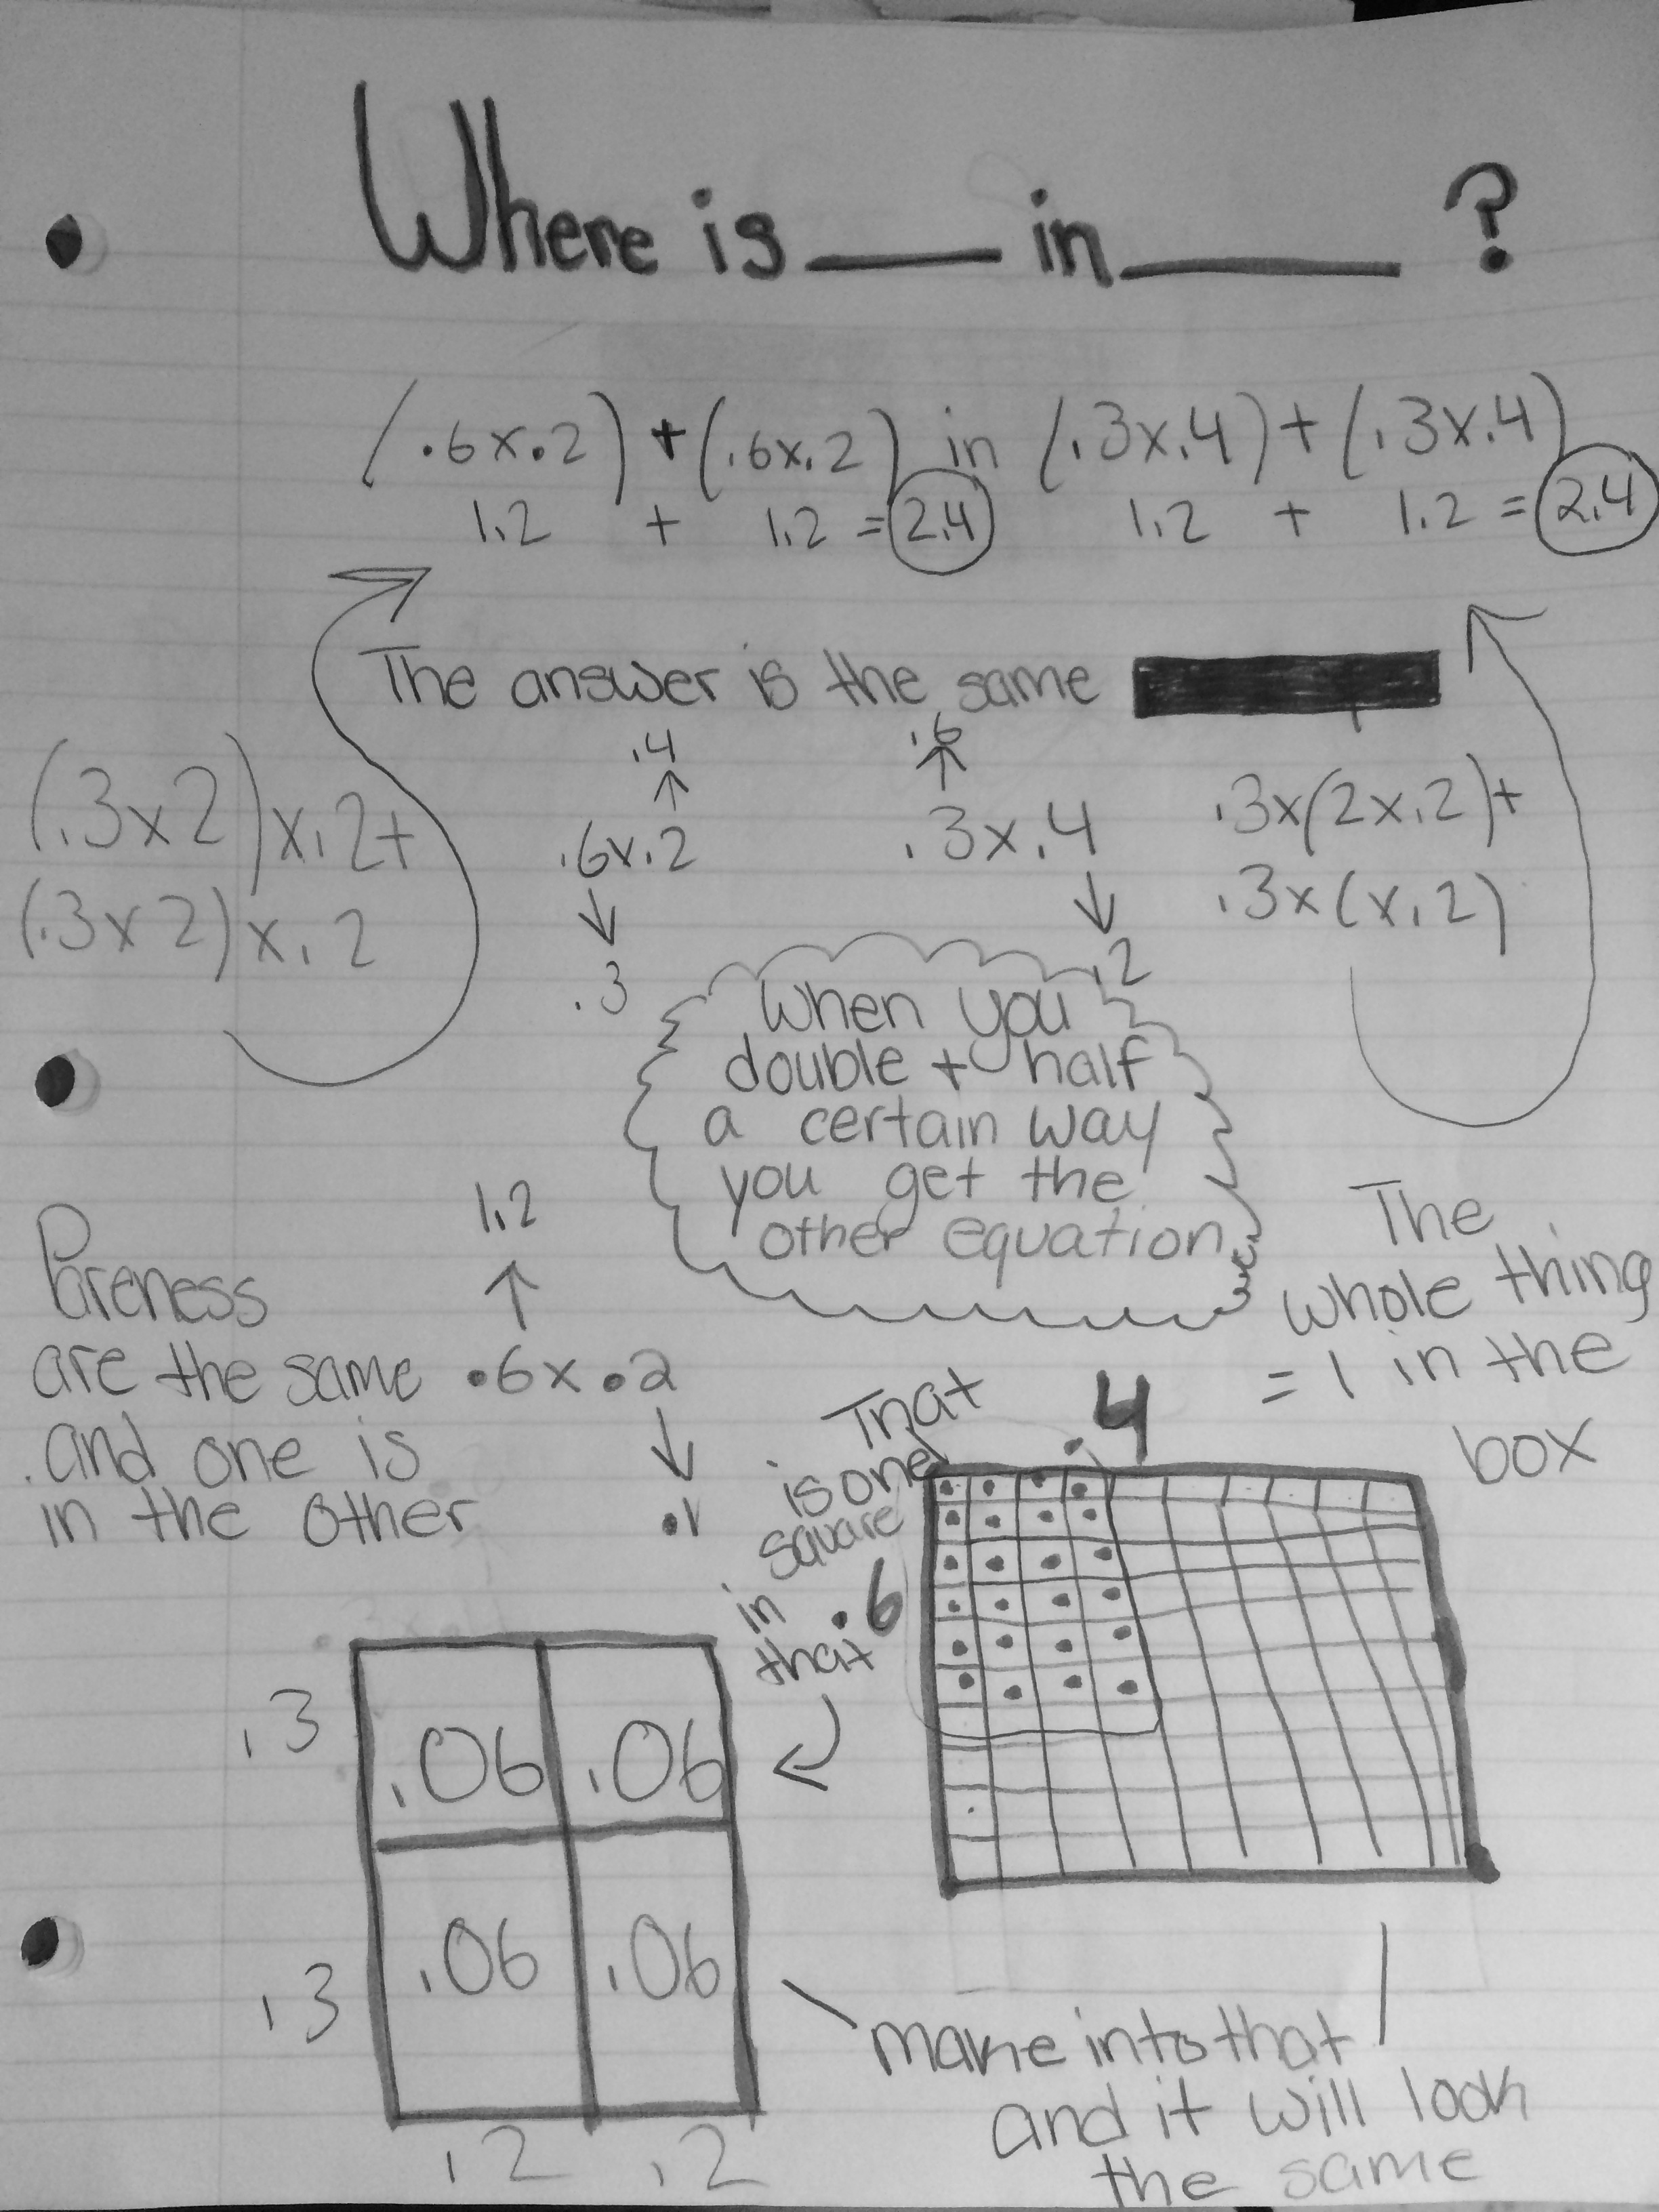 Where is ___ in ___ ?
(.6x.2) + (.6x.2) in (.3x.4) + (.3x.4)
1.2 + 1.2 = 2.4 1.2 + 1.2 = 2.4
The answer is the same
(.3x2)x.2+
(.3x2)x.2
.4
.6x.2
.3
.6
.3x.4
.2
.3x(2x.2)+
.3x(x.2)
When you
double + half
a certain way
you get the
other equation
Pareness
are the same
and one is
in the other
1.2
.6x.2
.1
The
whole thing
= 1 in the
box
That
is one
square
in
that
.4
.6
.3
.06 .06
.3
.06 .06
.2 .2
make into that
and it will look
the same